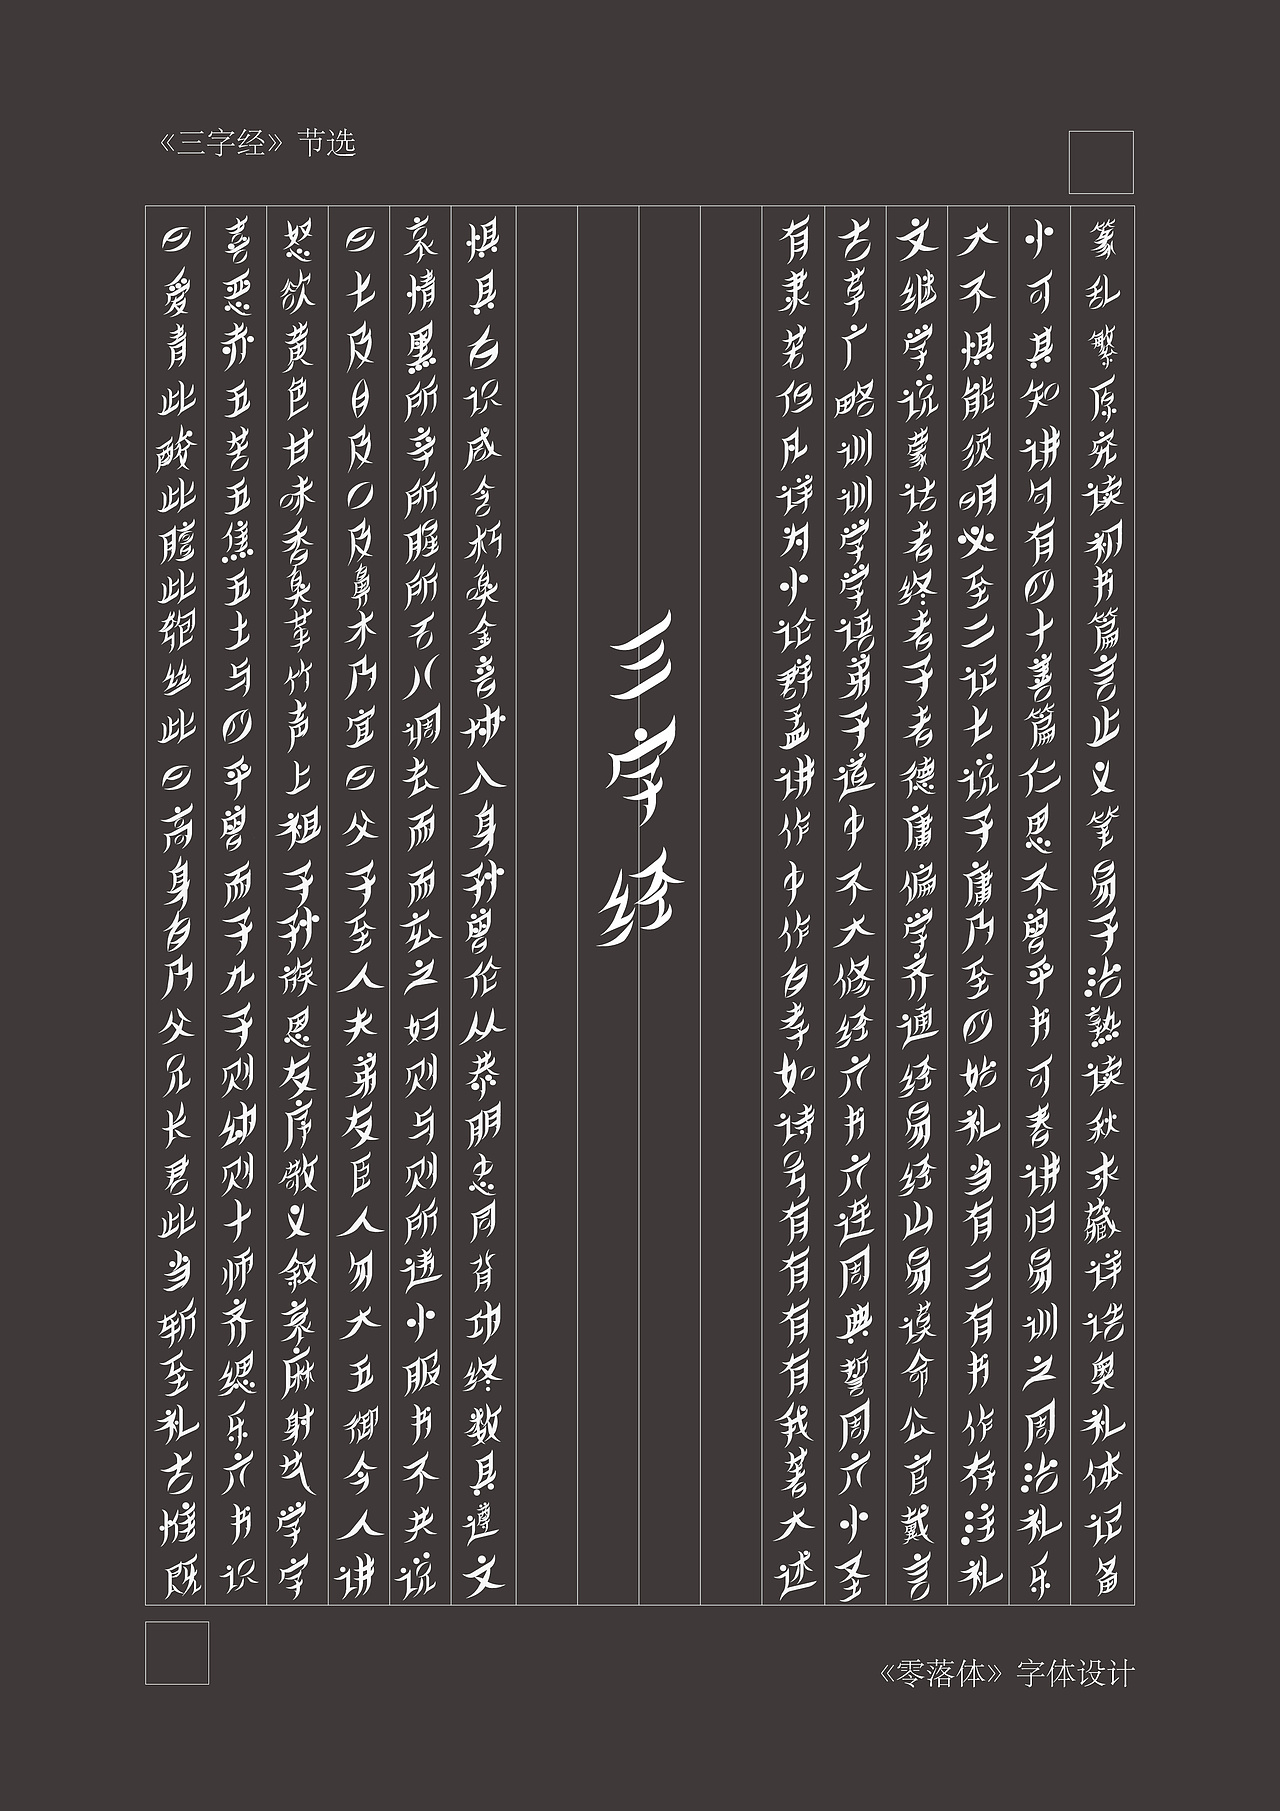 《三字经》节选
曰喜怒曰哀惧
爱恶欲七情具
青赤黄及黑白
此五色目所识
酸苦甘及辛咸
此五味口所含
膻焦香及腥朽
此五臭鼻所嗅
匏土革木石金
丝与竹乃八音
此四声宜调协
曰平上曰去入
高曾祖父而身
身而子子而孙
自子孙至玄曾
乃九族人之伦
父子恩夫妇从
兄则友弟则恭
长幼序友与朋
君则敬臣则忠
此十义人所同
当师叙勿违背
斩齐衰大小功
至缌麻五服终
礼乐射御书数
古六艺今不具
惟书学人共遵
既识字讲说文
三字经
有古文大小篆
隶草继不可乱
若广学惧其繁
但略说能知原
凡训蒙须讲究
详训诂明句读
为学者必有初
小学终至四书
论语者二十篇
群弟子记善言
孟子者七篇止
讲道德说仁义
作中庸子思笔
中不偏庸不易
作大学乃曾子
自修齐至平治
孝经通四书熟
如六经始可读
诗书易礼春秋
号六经当讲求
有连山有归藏
有周易三易详
有典谟有训诰
有誓命书之奥
我周公作周礼
著六官存治体
大小戴注礼记
述圣言礼乐备
《零落体》字体设计